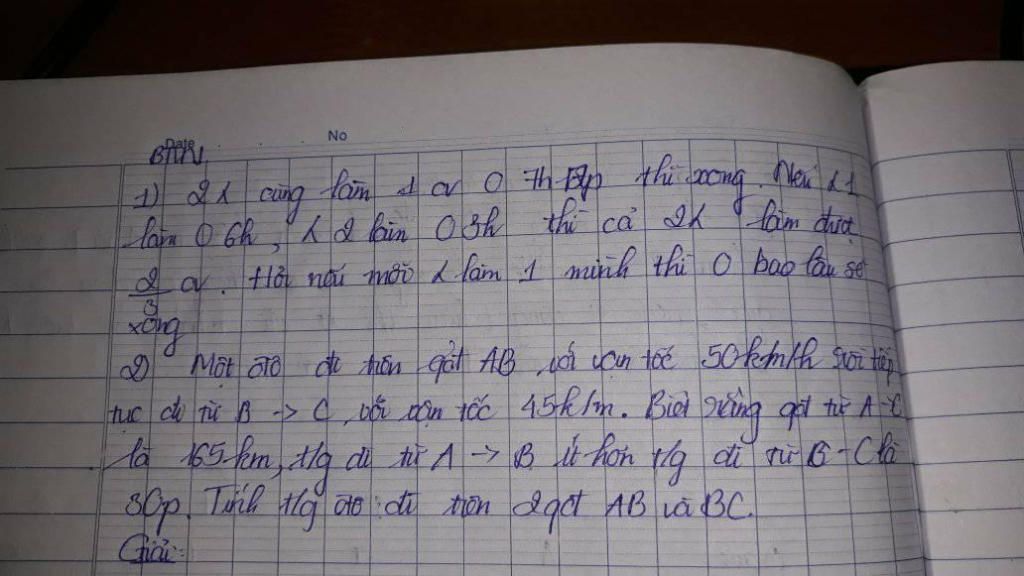 Date
No
BTVN
1) 2 cùng làm 1 cv 7h thì xong. Nếu 1
làm 6h, 2 làm 3h thì cả 2 làm được
2/3 cv. Hỏi nếu mỗi làm 1 mình thì bao lâu sẽ
xong
2) Một ôtô đi trên qđ AB với vận tốc 50km/h rồi tiếp
tục đi từ B -> C với vận tốc 45k/m. Biết rằng qđ từ A - C
là 165km, t/g đi từ A -> B ít hơn t/g đi từ B - C là
30p. Tính t/g ôtô đi trên 2 qđ AB và BC.
Giải: